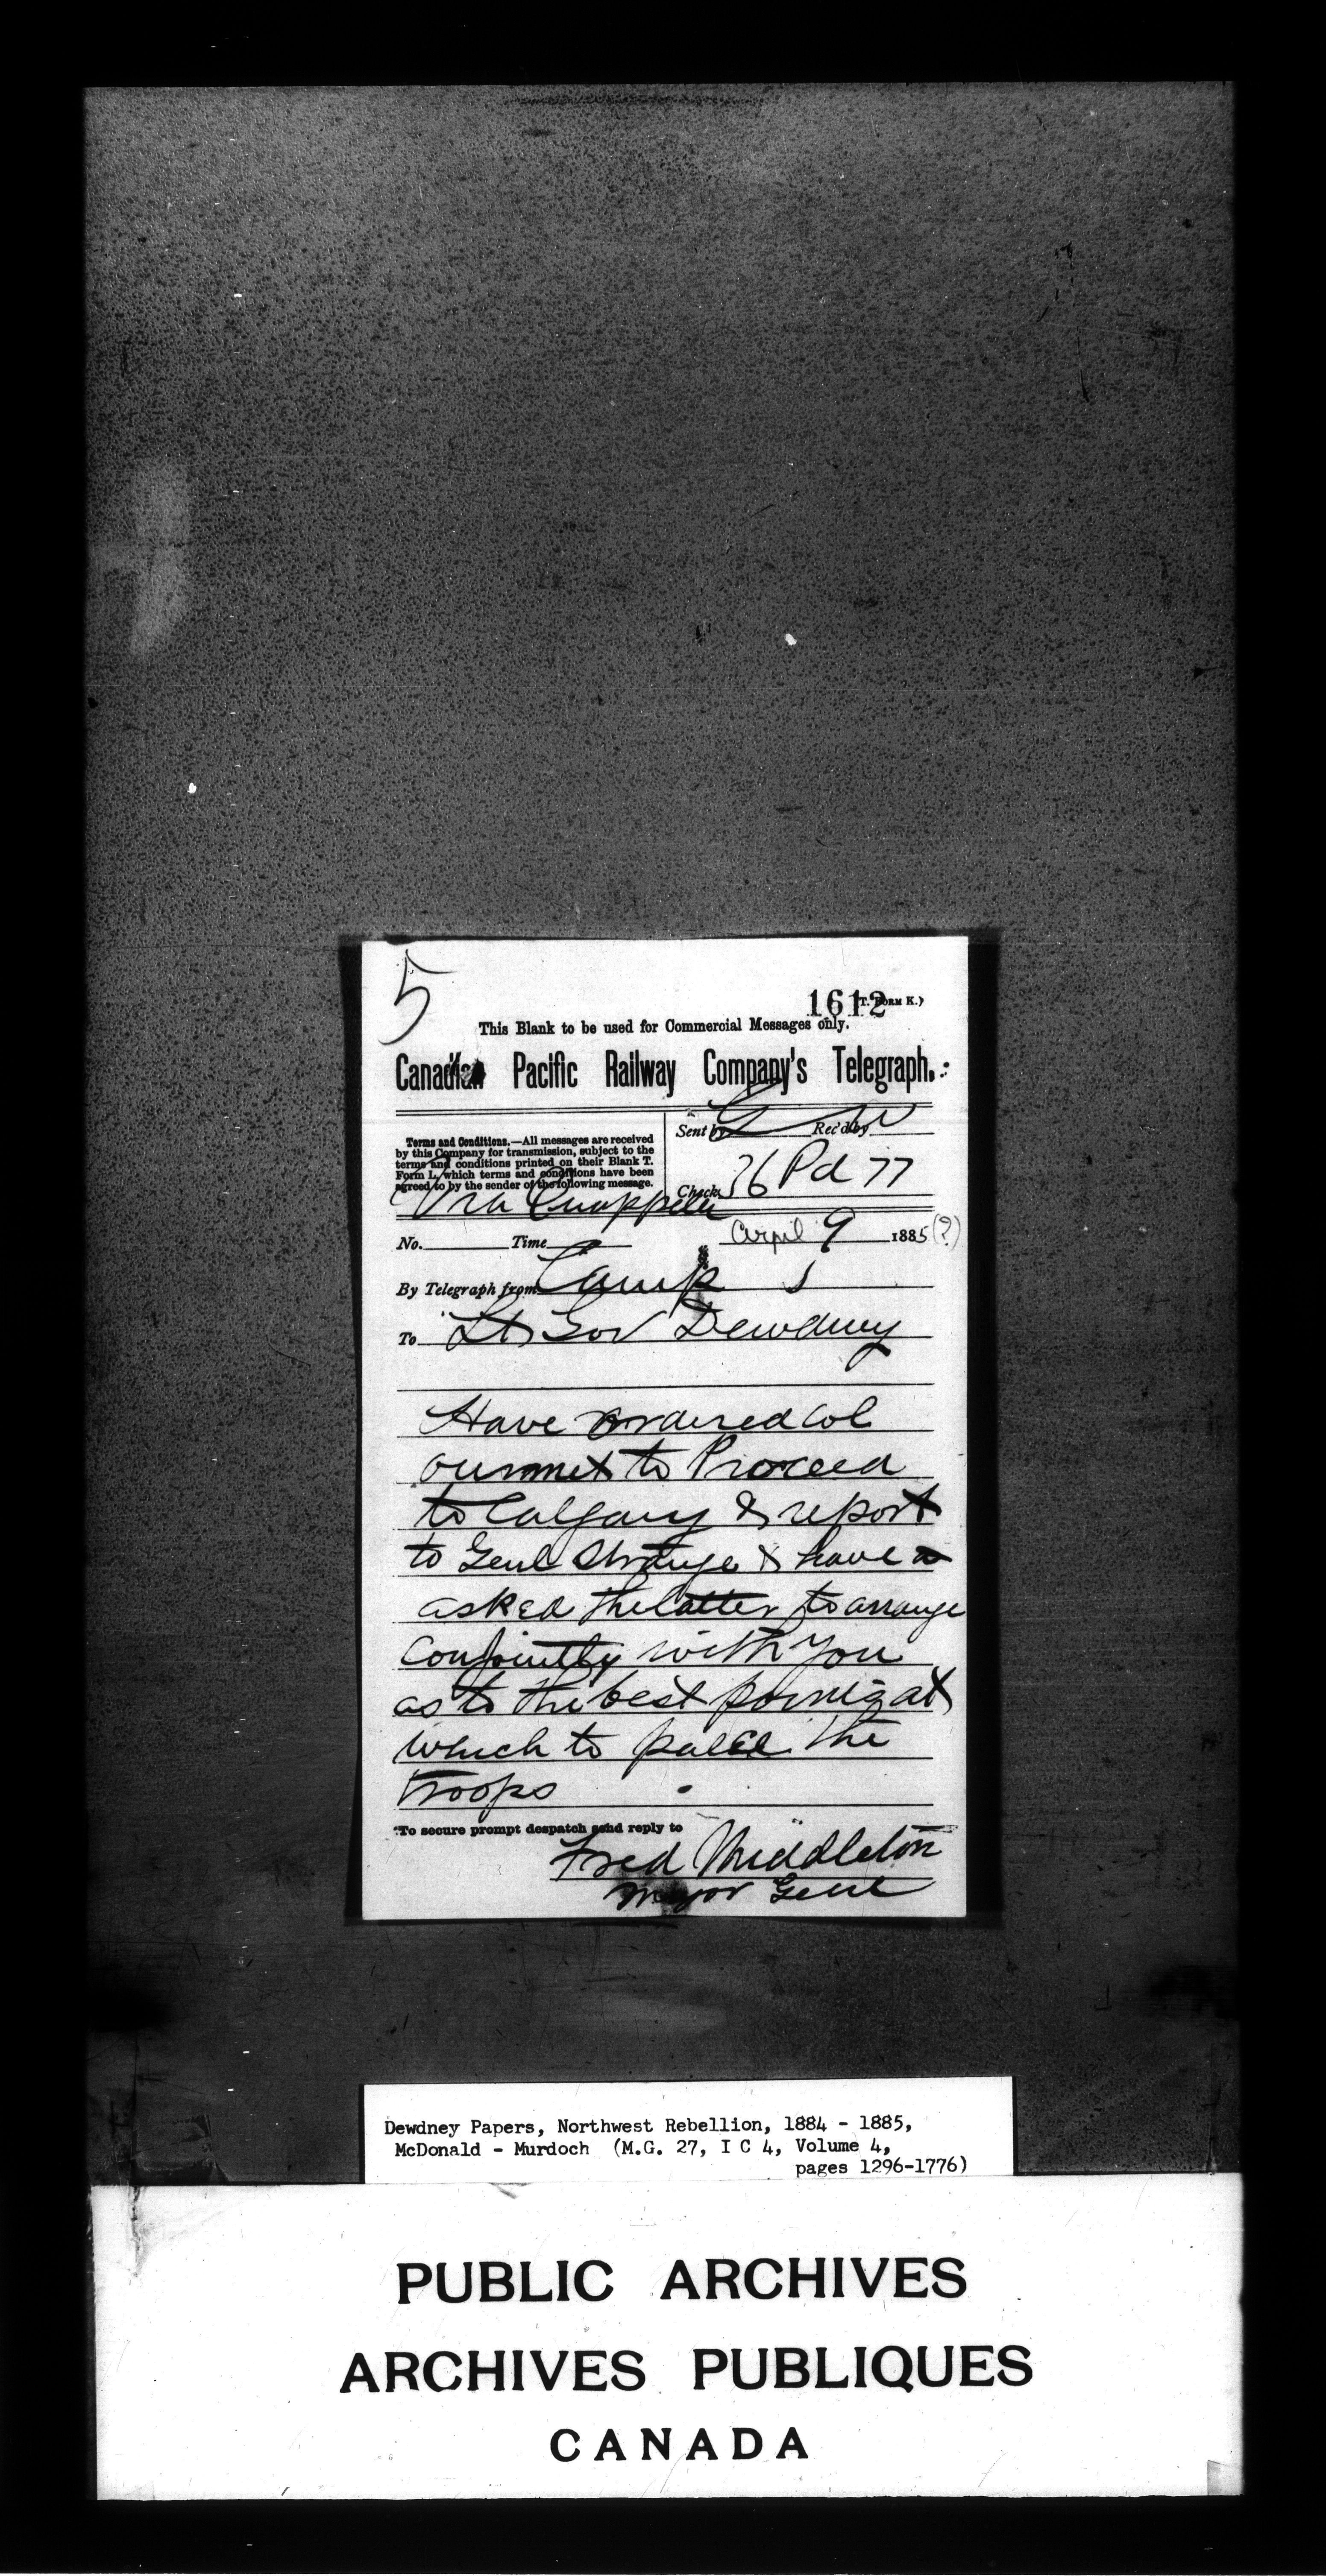 5
1612
(T. FORM K.)
This Blank to be used for Commercial Messages only.
Canadian Pacific Railway Company's Telegraph.
Terms and Conditions.—All messages are received
by this Company for transmission, subject to the
terms and conditions printed on their Blank T.
Form L, which terms and conditions have been
agreed to by the sender of the following message.
Sent by Rec'd by
Check 36 Pd 77
Via Quappelle
April 9 1885 (?)
No. Time
By Telegraph from Camp
To Lt Gov Dewdney
Have ordered Col
ouimet to Proceed
to Calgary & report
to Genl Strange & have
asked the latter to arrange
conjointly with you
as to the best points at
which to palce the
troops
To secure prompt despatch send reply to
Fred Middleton
Major Genl
Dewdney Papers, Northwest Rebellion, 1884 - 1885,
McDonald - Murdoch (M.G. 27, I C 4, Volume 4,
pages 1296-1776)
PUBLIC ARCHIVES
ARCHIVES PUBLIQUES
CANADA